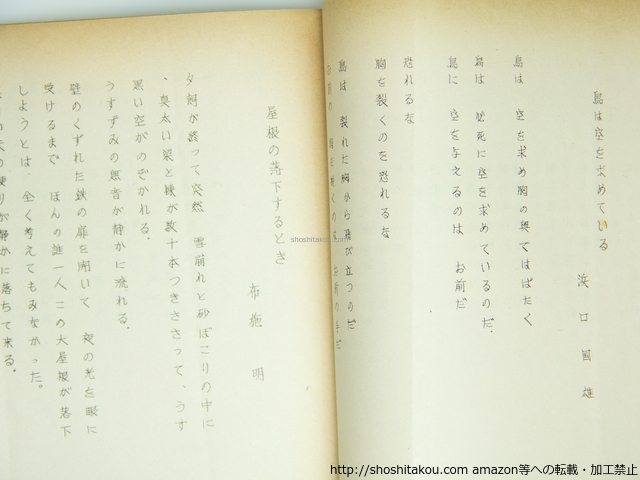 鳥は空を求めている
浜口國雄
鳥は 空を求め胸の奥ではばたく
鳥は 必死に空を求めているのだ、
鳥に 空を与えるのは お前だ
恐れるな
胸を裂くのを恐れるな
鳥は 裂れた胸から飛び立つのだ
屋根の落下するとき
布施 明
夕餉が終って突然 雪崩れと砂ぼこりの中に
、奥太い梁と棟が数十本つきささって、うす
黒い空がのぞかれる。
うすずみの無音が静かに流れる。
壁のくずれた鉄の扉を開いて 夜の光を眼に
受けるまで ほんの誰一人この大屋根が落下
しようとは 全く考えてもみなかった。
が静かに落ちて来る。
shoshitakou.com
http://shoshitakou.com amazon等への転載・加工禁止